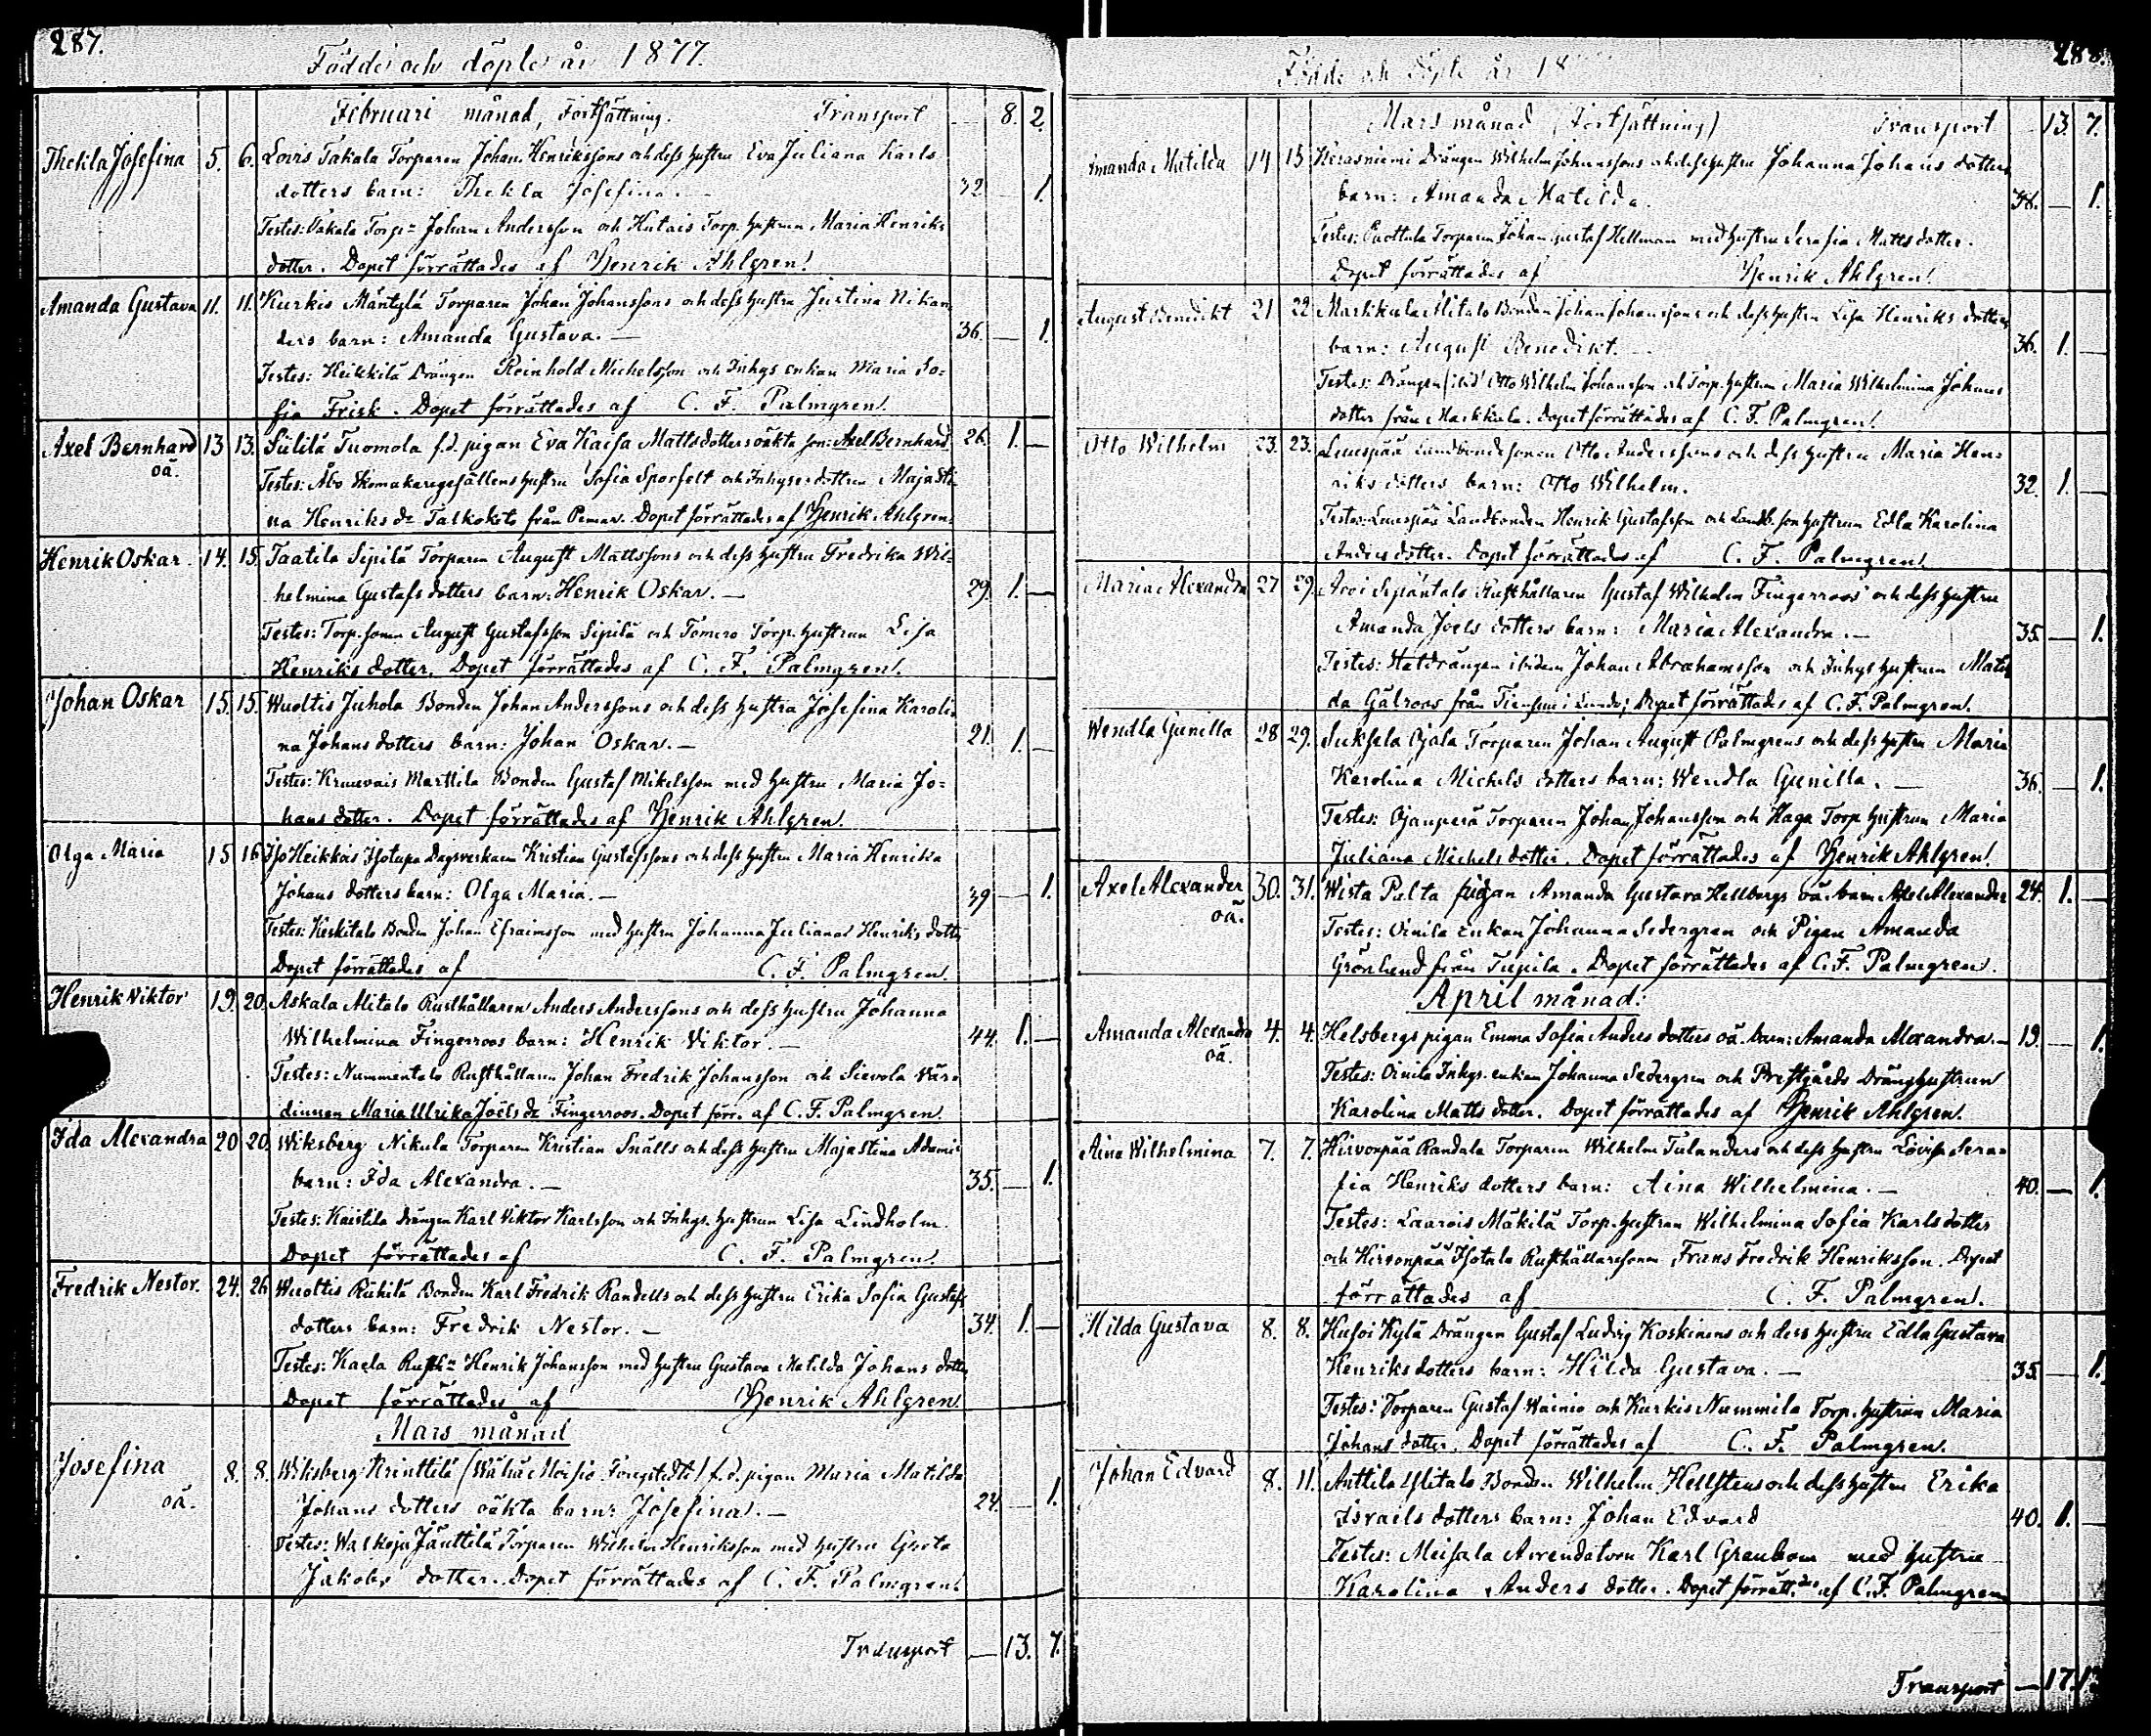 287.
Födde och döpte år 1877.
Februari månad, Fortsättning. Transport — 8. 2.
Thekla Josefina 5. 6. Lovis Takala Torparen Johan Henrikssons och dess hustru Eva Juliana Karls
dotters barn: Thekla Josefina. — 32 1.
Testes: Takala Torpn Johan Andersson och Hutais Torp. hustrun Maria Henriks
dotter. Dopet förrättades af Henrik Ahlgren.
Amanda Gustava 11. 11. Kurkis Mäntylä Torparen Johan Johanssons och dess hustru Justina Nikan
ders barn: Amanda Gustava. — 36. — 1.
Testes: Heikkilä Drängen Reinhold Michelsson och Inhys enkan Maria So=
fia Frisk. Dopet förrättades af C. F. Palmgren.
Axel Bernhard 13 13. Sülilä Tuomola f.d. pigan Eva Kaisa Mattsdotters oäkta son: Axel Bernhard 26. 1. —
oä. Testes: Åbo Skomakaregesällens hustru Sofia Sporfelt och Inhysesdottren Maja Sti=
na Henriks dr Taskokoto från Pemar. Dopet förrättades af Henrik Ahlgren.
Henrik Oskar. 14. 15. Taatila Sipilä Torparen August Mattssons och dess hustru Fredrika Wil=
helmina Gustafs dotters barn: Henrik Oskar. — 29. 1. —
Testes: Torp. sonen August Gustafsson Sipilä och Tomero Torp. hustrun Lisa
Henriks dotter. Dopet förrättades af C. F. Palmgren.
Johan Oskar 15. 15. Wuoltis Juhola Bonden Johan Anderssons och dess hustru Josefina Karoli=
na Johans dotters barn: Johan Oskar. — 21. 1. —
Testes: Kruuvais Marttila Bonden Gustaf Mikelsson med hustru Maria Jo=
hans dotter. Dopet förrättades af Henrik Ahlgren.
Olga Maria 15 16 Iso Heikkäs Isotupa Dagsverkaren Kristian Gustafssons och dess hustru Maria Henrika
Johans dotters barn: Olga Maria. — 39 — 1.
Testes: Keskitalo Bonden Johan Efraimsson med hustru Johanna Juliana Henriks dotter
Dopet förrättades af C. F. Palmgren.
Henrik Viktor 19. 20. Askala Alitalo Rusthållaren Anders Anderssons och dess hustru Johanna
Wilhelmina Fingerroos barn: Henrik Viktor. — 44. 1. —
Testes: Nummentalo Rusthållaren Johan Fredrik Johansson och Sievola Vär=
dinnan Maria Ulrika Joels dr Fingerroos. Dopet förr. af C. F. Palmgren.
Ida Alexandra 20 20. Wiksberg Nikula Torparen Kristian Snälls och dess hustru Maja Stina Adami
barn: Ida Alexandra. — 35. — 1.
Testes: Kaistila drängen Karl Viktor Karlsson och Inhys. hustrun Lisa Lindholm.
Dopet förrättades af C. F. Palmgren.
Fredrik Nestor. 24. 26 Wuoltis Rühilä Bonden Karl Fredrik Randells och dess hustru Erika Sofia Gustafs
dotters barn: Fredrik Nestor. — 34. 1. —
Testes: Kaela Rusth:n Henrik Johansson med hustru Gustava Matilda Johans dotter
Dopet förrättades af Henrik Ahlgren.
Mars månad
Josefina 8. 8. Wiksberg Krinttilä (Wähä Moisio Fongstedt) f.d. pigan Maria Matilda
oä. Johans dotters oäkta barn: Josefina. — 24. — 1.
Testes: Walkoja Jänttilä Torparen Wilhelm Henriksson med hustru Greta
Jakobs dotter. Dopet förrättades af C. F. Palmgren.
Transport — 13. 7.
288.
Födde och döpte år 18
Mars månad (Fortsättning) Transport — 13. 7.
Amanda Matilda 14 15 Kerasniemi Drängen Wilhelm Johanssons och dess hustru Johanna Johans dotters
barn: Amanda Matilda. 38. — 1.
Testes: Puottula Torparen Johan Gustaf Hellman med hustru Serafia Matts dotter.
Dopet förrättades af Henrik Ahlgren.
August Benedikt 21 22 Markkula Alitalo Bonden Johan Johanssons och dess hustru Lisa Henriks dotters
barn: August Benedikt. — 36. 1. —
Testes: Drängen (ibid) Otto Wilhelm Johansson och Torp. hustrun Maria Wilhelmina Johans
dotter från Markkula. Dopet förrättades af C. F. Palmgren.
Otto Wilhelm 23. 23. Leuspää Landbondesonen Otto Anderssons och dess hustru Maria Hen=
riks dotters barn: Otto Wilhelm. 32. 1. —
Testes: Leuspää Landbonden Henrik Gustafsson och Landb. sonhustrun Edla Karolina
Anders dotter. Dopet förrättades af C. F. Palmgren
Maria Alexandra 27 29. Arvi Sepäntalo Rusthållaren Gustaf Wilhelm Fingerroos och dess hustru
Amanda Joels dotters barn: Maria Alexandra. — 35. — 1.
Testes: Statdrängen ibidem Johan Abrahamsson och Inhys hustrun Matil
da Gälroos från Tiensuu i Lundo; Dopet förrättades af C. F. Palmgren.
Wendla Gunilla 28 29. Suksela Ojala Torparen Johan August Palmgrens och dess hustru Maria
Karolina Michels dotters barn: Wendla Gunilla. — 36. — 1.
Testes: Ojanperä Torparen Johan Johansson och Haga Torp hustrun Maria
Juliana Michels dotter. Dopet förrättades af Henrik Ahlgren.
Axel Alexander 30. 31. Wista Palta pigan Amanda Gustava Hellbergs oä. barn Axel Alexander 24. 1. —
oä. Testes: Oinila Enkan Johanna Sedergren och Pigan Amanda
Grönlund från Tupila. Dopet förrättades af C. F. Palmgren.
April månad:
Amanda Alexandra 4. 4. Helsbergs pigan Emma Sofia Anders dotters oä. barn: Amanda Alexandra. — 19. — 1.
oä. Testes: Oinila Inhys. enkan Johanna Sedergren och Prestgårds Dränghustrun
Karolina Matts dotter. Dopet förrättades af Henrik Ahlgren.
Aina Wilhelmina 7. 7. Hirvonpää Randala Torparen Wilhelm Tulanders och dess hustru Lovisa Sera=
fia Henriks dotters barn: Aina Wilhelmina. — 40. — 1.
Testes: Laarois Mäkilä Torp. hustrun Wilhelmina Sofia Karls dotter
och Hirvonpää Isotalo Rusthållarsonen Frans Fredrik Henriksson. Dopet
förrättades af C. F. Palmgren.
Hilda Gustava 8. 8. Husoi Kylä Drängen Gustaf Ludvig Koskinens och dess hustru Edla Gustava
Henriks dotters barn: Hilda Gustava. — 35. — 1.
Testes: Torparen Gustaf Wainio och Kurkis Nummila Torp. hustrun Maria
Johans dotter. Dopet förrättades af C. F. Palmgren.
Johan Edvard 8. 11. Anttila Ylitalo Bonden Wilhelm Hellstens och dess hustru Erika
Israels dotters barn: Johan Edvard 40. 1. —
Testes: Meisala Arrendatorn Karl Granbom med hustru
Karolina Anders dotter. Dopet förrätt.des af C. F. Palmgren
Transport — 17.